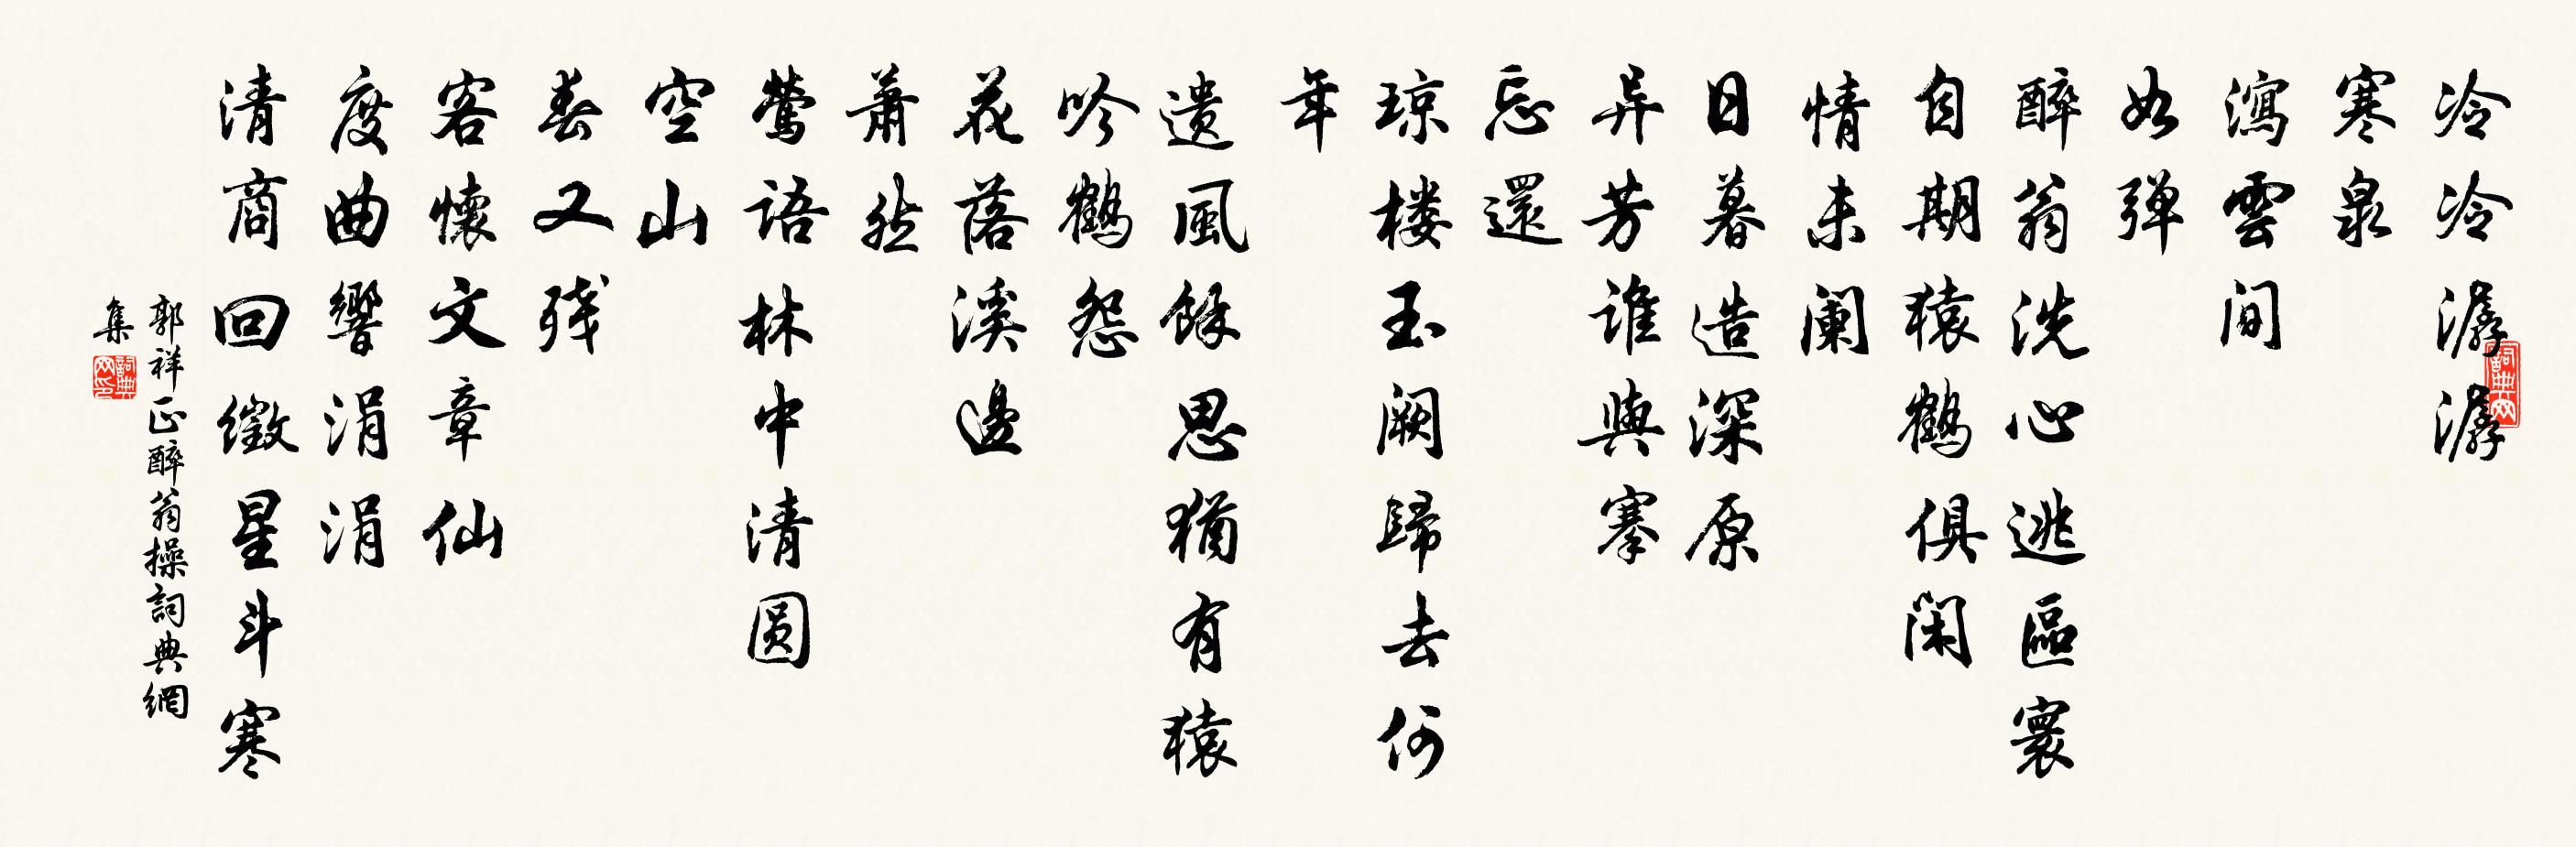 冷冷潺潺
寒泉
瀉雲间
如弹
醉翁洗心逃區寰
自期猿鹤俱闲
情未阑
日暮造深原
异芳谁與搴
忘還
琼楼玉阙歸去何
年
遗風餘思猶有猿
吟鹤怨
花落溪邊
萧然
莺语林中清圆
空山
春又残
客懷文章仙
度曲響涓涓
清商回徵星斗寒
郭祥正醉翁操詞典網
集
詞典网
詞典网印